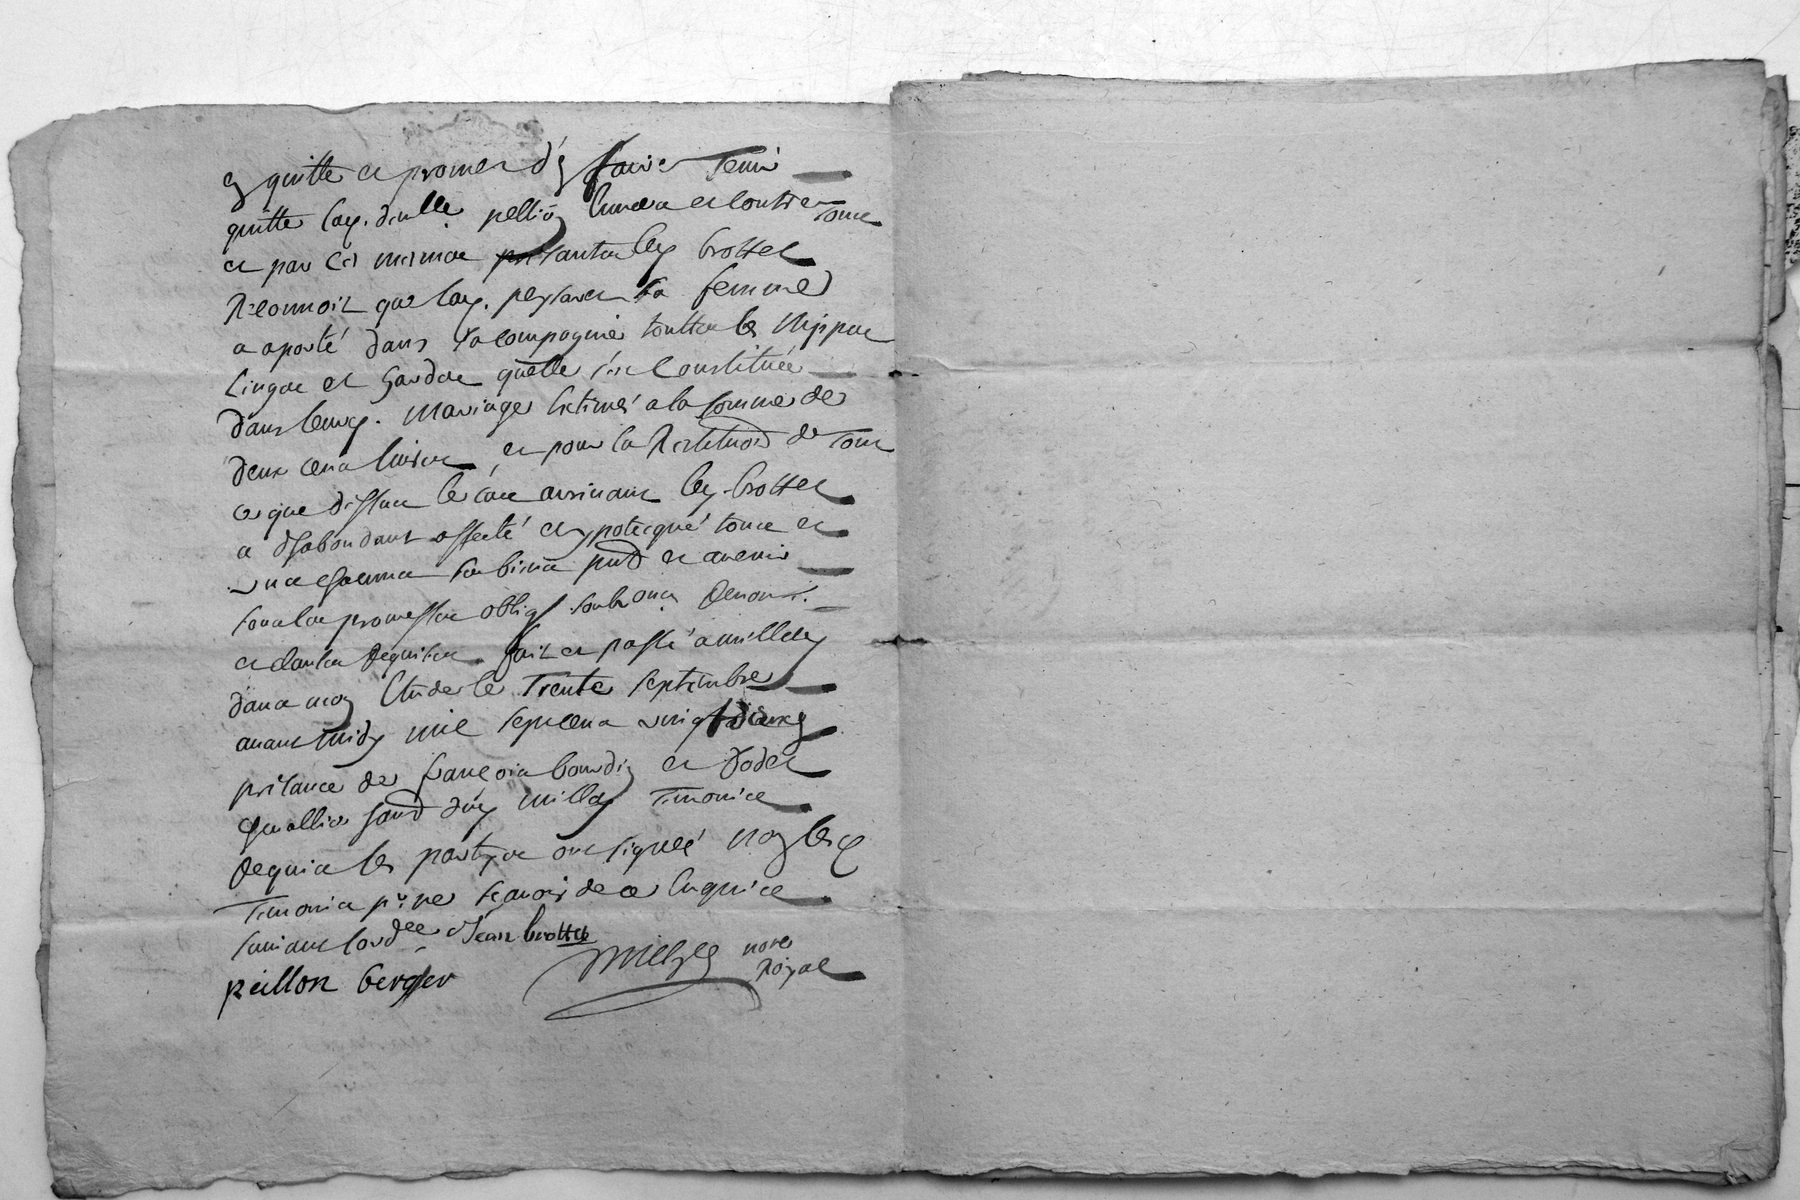 quitte et promet d'y faire Tenir
quitte lad. dlle pellion Envers et Contre Tous
et par ces mesmes presantes led brottet
Reconnoit que lad. peysson sa femme
a aporté dans sa compagnie touttes les Nippes
Linges et hardes quelle s'est Constituée
dans leurd. mariage Estimés a la somme de
deux cens livres, et pour la Restituon de Tout
ce que dessus le cas arrivant led. brottet
a d'habondant affecté et ypotecqué tous et
uns chacuns ses biens pnts et avenir
sous les promesses oblig soubmons Renons.
et clauses Requises. fait et passé a millery
dans mon Etude le Trente septembre
avant midy mil sept cens vingt
présance de françois bourdin et
dud millery Temoins
Requis les parties ont signés non les
Temoins pour ne sçavoir de ce Enquis
suivant lordce Jean brottet
peillon berger
nore
Royal